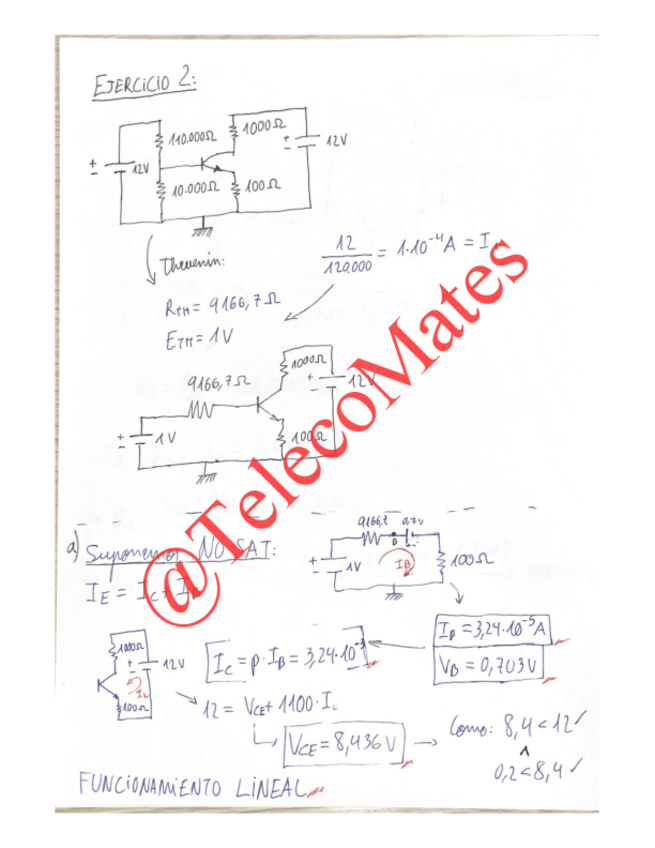 EJERCICIO 2:
110.000Ω
1000Ω
+
-
12V
+
-
12V
10.000Ω
100Ω
Thevenin:
12/120.000 = 1·10⁻⁴A = I
R_TH = 9166,7Ω
E_TH = 1V
1000Ω
+
-
12V
9166,7Ω
+
-
1V
100Ω
@TelecoMates
a) Suponemos NO SAT:
9166,7
0,7V
B
+
-
1V
I_B
100Ω
I_E = I_C + I_B
I_B = 3,24·10⁻⁵A
V_B = 0,703V
1000Ω
+
-
12V
100Ω
I_C = β·I_B = 3,24·10⁻³
12 = V_CE + 1100·I_C
V_CE = 8,436V
Como: 8,4 < 12 ✓
∧
0,2 < 8,4 ✓
FUNCIONAMIENTO LINEAL